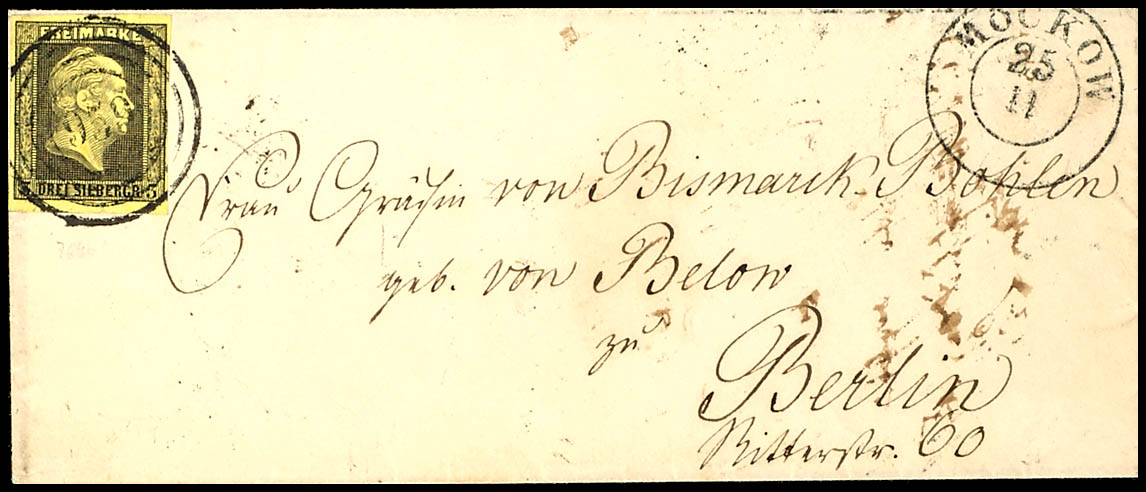 FREIMARKE
3 DREI SILBERGR. 3
MOCKOW
25
11
Frau Gräfin von Bismarck-Bohlen
geb. von Below
zu
Berlin
Ritterstr. 60